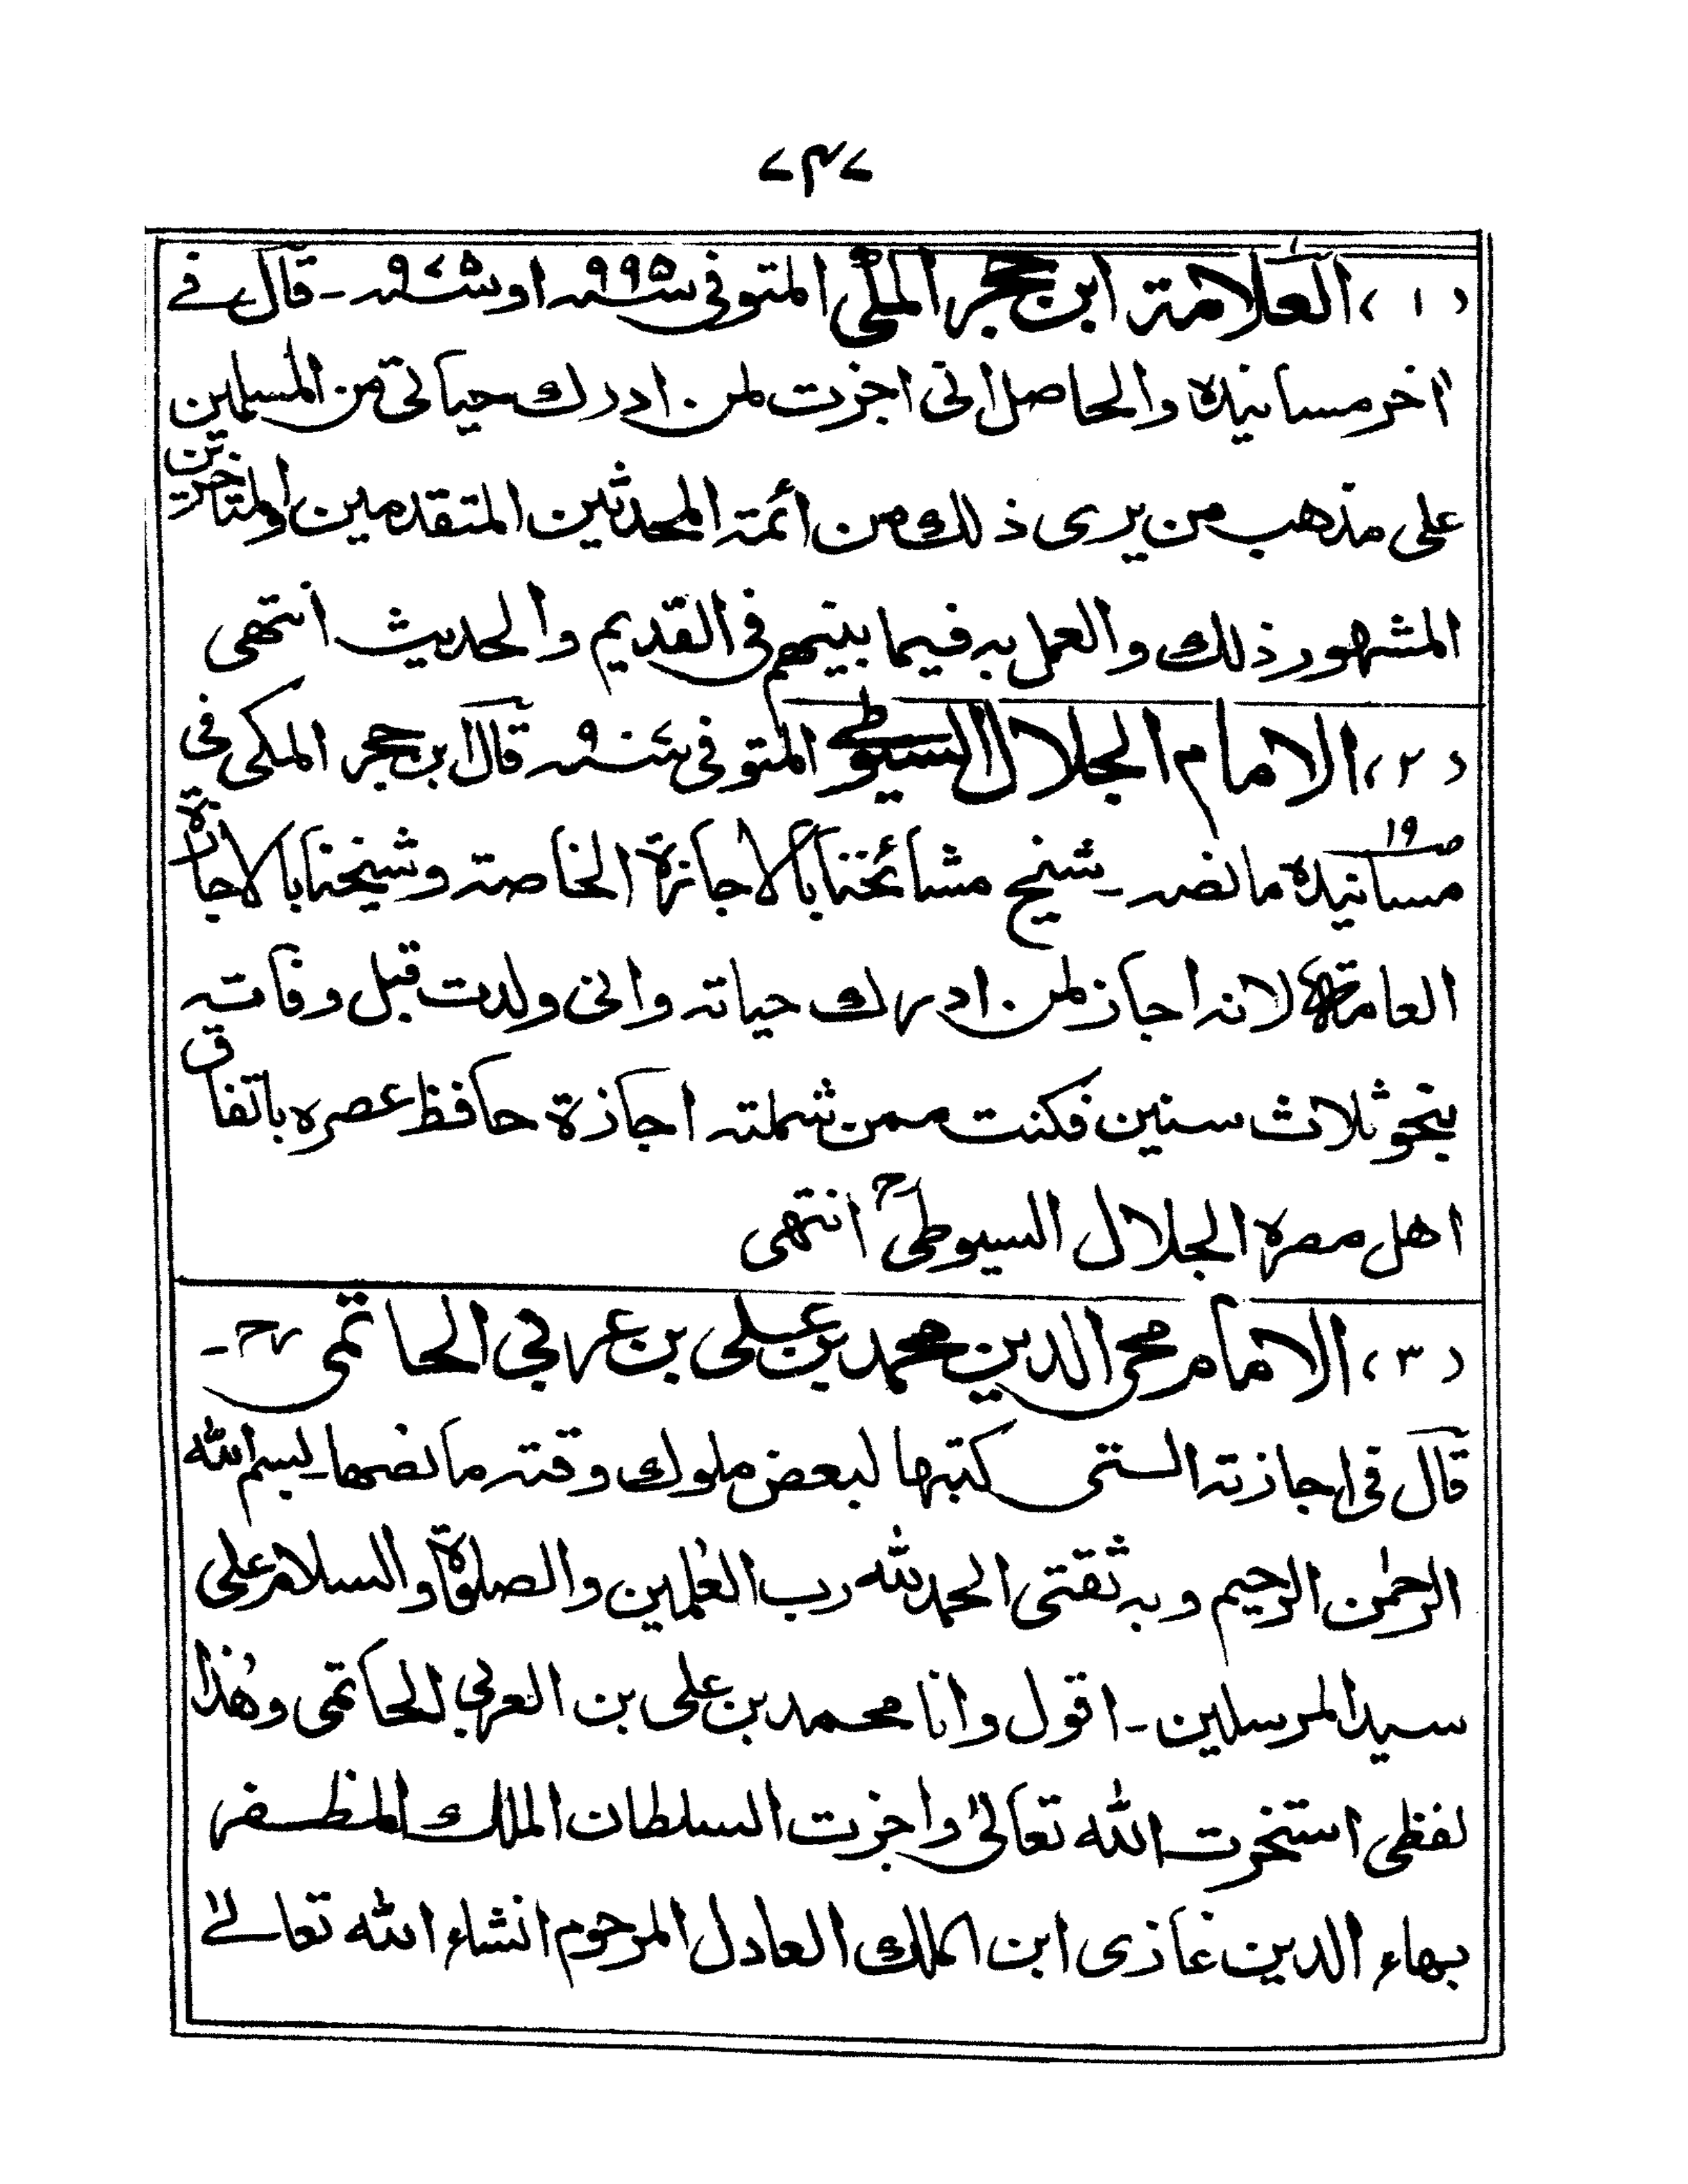 ۷۴۷
(۱) العلامة ابن حجر المكي المتوفى سنه ۹۹۵ او سنه ۹۷۵ - قال في
اخر مسانيده والحاصل انى اجزت لمن ادرك حياتى من المسلمين
على مذهب من يرى ذلك من ائمة المحدثين المتقدمين والمتاخرين
المشهور ذلك والعمل به فيما بينهم فى القديم والحديث انتهى
(۲) الامام الجلال السيوطي المتوفى سنه ۹۰۷ قال ابن حجر المكى فى
مسانيده ص۱۹ ما نصه - شيخ مشائخنا بالاجازة الخاصة وشيخنا بالاجازة
العامة لانه اجاز لمن ادرك حياته وانى ولدت قبل وفاته
بنحو ثلاث سنين فكنت ممن شملته اجازة حافظ عصره باتفاق
اهل مصره الجلال السيوطىؒ انتهى
(۳) الامام محى الدين محمد بن على بن عربي الحاتمى رح -
قال فى اجازته التى كتبها لبعض ملوك وقته ما نصها - بسم الله
الرحمٰن الرحيم وبه ثقتى الحمد لله رب العٰلمين والصلوة والسلام على
سيد المرسلين - اقول وانا محمد بن على بن العربي الحاتمى وهٰذا
لفظى استخرت الله تعالىٰ واجزت السلطان الملك المظفر
بهاء الدين غازى ابن الملك العادل المرحوم انشاء الله تعالىٰ